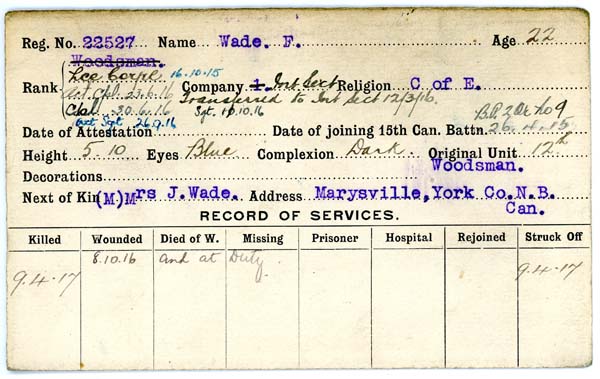 Reg. No. 22527 Name Wade. F. Age 22
Woodsman.
Lce Corpl 16.10.15
Rank Act Cpl. 23.6.16 Company 1. Int Sect Religion C of E.
Cpl 30.6.16 Sgt. 10.10.16 Transferred to Int Sect 12/3/16.
Act Sgt 26.9.16 B.P. 2 Or No 9
Date of Attestation Date of joining 15th Can. Battn. 26.4.15
Height 5 10 Eyes Blue Complexion Dark. Original Unit 12th
Decorations Woodsman.
Next of Kin (M) Mrs J. Wade. Address Marysville, York Co. N.B.
Can.
RECORD OF SERVICES.
Killed Wounded Died of W. Missing Prisoner Hospital Rejoined Struck Off
8.10.16 and at Duty.
9.4.17 9.4.17